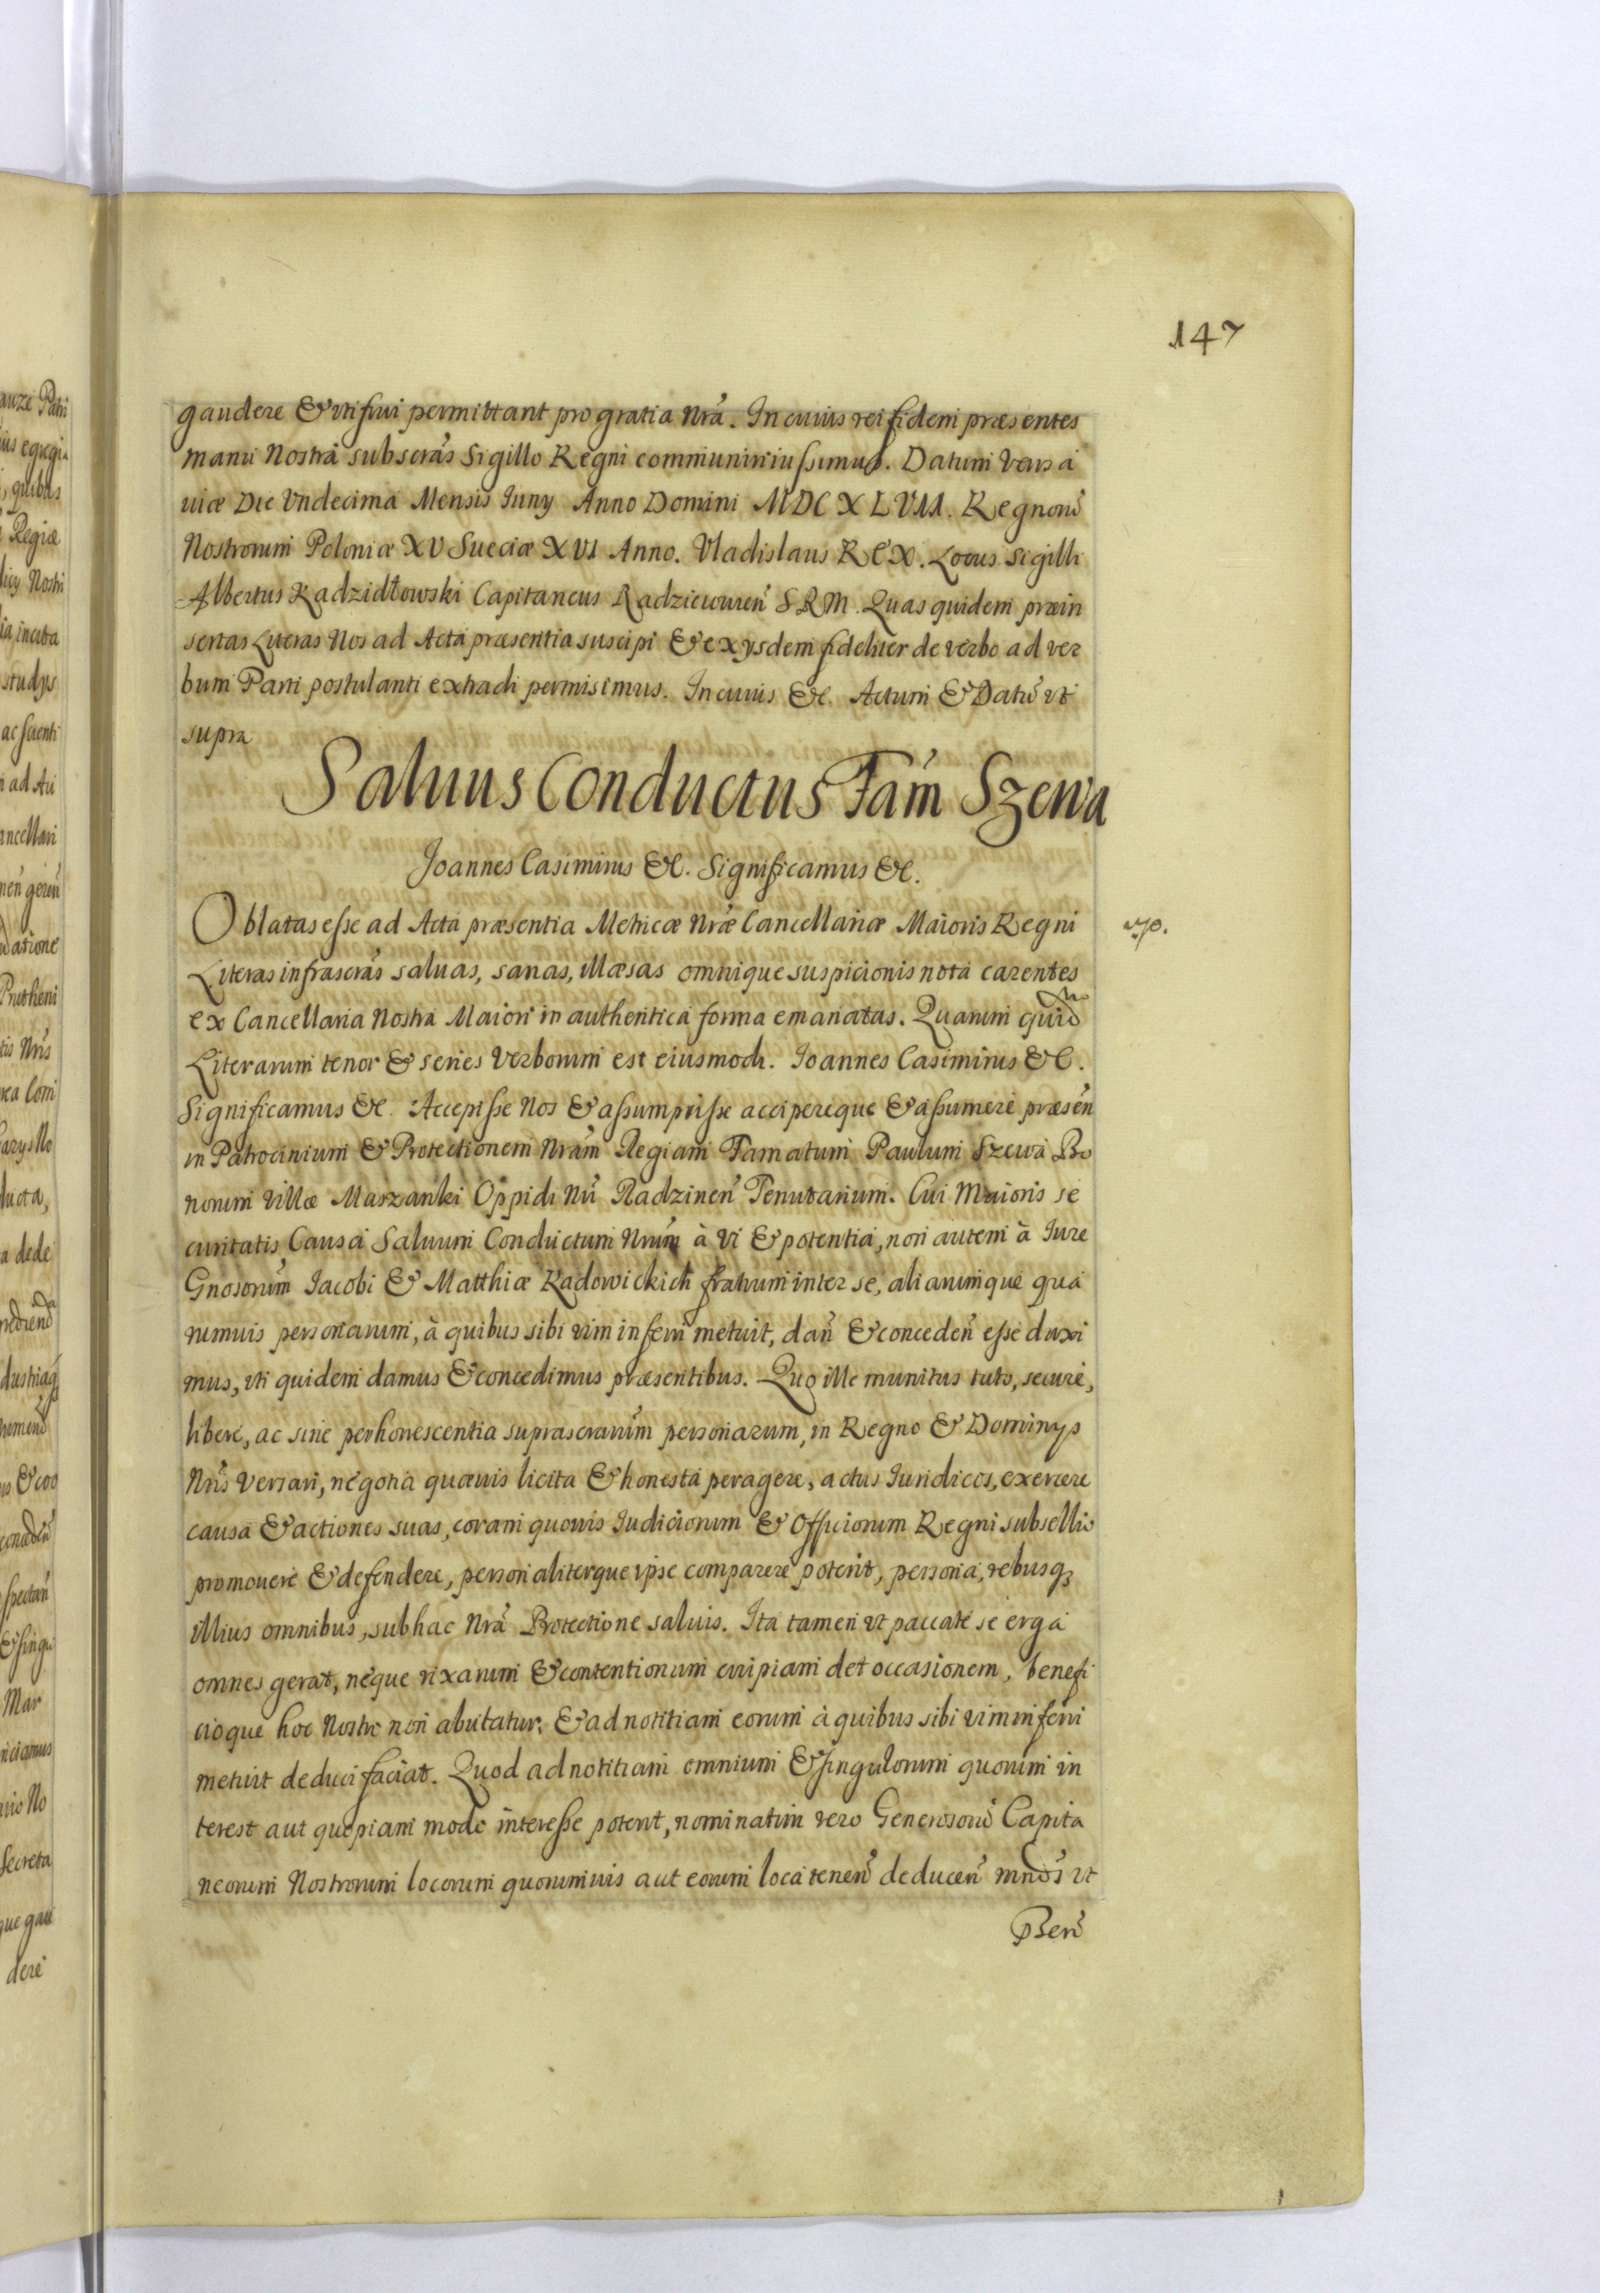 147
gaudere & vtifrui permittant pro gratia Nrã. In cuius rei fidem præsentes
manu Nostrâ subscrãs Sigillo Regni communiri iussimus. Datum Varsa
uiæ Die Vndecima Mensis Iuny Anno Domini MDCXLVII. Regnorũ
Nostrorum Poloniæ XV Sueciæ XVI Anno. Vladislaus REX. Locus Sigilli
Albertus Kadzidłowski Capitaneus Radzieiouień SRM. Quas quidem præin
sertas Literas Nos ad Acta præsentia suscipi & ex ysdem fideliter de verbo ad ver
bum Parti postulanti extradi permisimus. In cuius &c. Actum & Datũ vt
supra
Saluus Conductus Fám Szewa
Joannes Casimirus &c. Significamus &c.
Oblatas esse ad Acta præsentia Metricæ Nræ Cancellariæ Maioris Regni
Literas infrascrãs saluas, sanas, illæsas omnique suspicionis notâ carentes
ex Cancellaria Nostra Maiori in authentica forma emanatas. Quarum quid
Literarum tenor & series Verborum est eiusmodi. Joannes Casimirus &c.
Significamus &c. Accepisse Nos & assumpsisse accipereque & assumere præsẽn
in Patrocinium & Protectionem Nrãm Regiam Famatum Paulum Szewa Bo
norum Villæ Marzanki Oppidi Nri Radzinen̄ Tenutarium. Cui Maioris se
curitatis Causâ Saluum Conductum Nrũm à vi & potentiâ, non autem à Iure
Gnosorũm Jacobi & Matthiæ Kadowickich fratrum inter se, aliarumque qua
rumuis personarum, à quibus sibi vim inferri metuit, dan̄ & conceden̄ esse duxi
mus, vti quidem damus & concedimus præsentibus. Quo ille munitus tuto, secure,
libere, ac sine perhorrescentia suprascrarũm personarum, in Regno & Dominys
Nrĩs versari, negotia quæuis licita & honesta peragere, actus Iuridicos, exercere
causa & actiones suas, coram quouis Iudiciorum & Officiorum Regni subsellio
promouere & defendere, personaliterque ipse comparere poterit, persona, rebusq₃
illius omnibus, sub hac Nrã Protectione saluis. Ita tamen vt paccate se erga
omnes gerat, neque rixarum & contentionum cuipiam det occasionem, benefi
cioque hoc Nostro non abutatur, & ad notitiam eorum à quibus sibi vim inferri
metuit deduci faciat. Quod ad notitiam omnium & singulorum quorum in
terest aut quopiam modo interesse poterit, nominatim vero Generosorũ Capita
neorum Nostrorum locorum quorumuis aut eorum loca tenen̄ deducen̄ mndõs vt